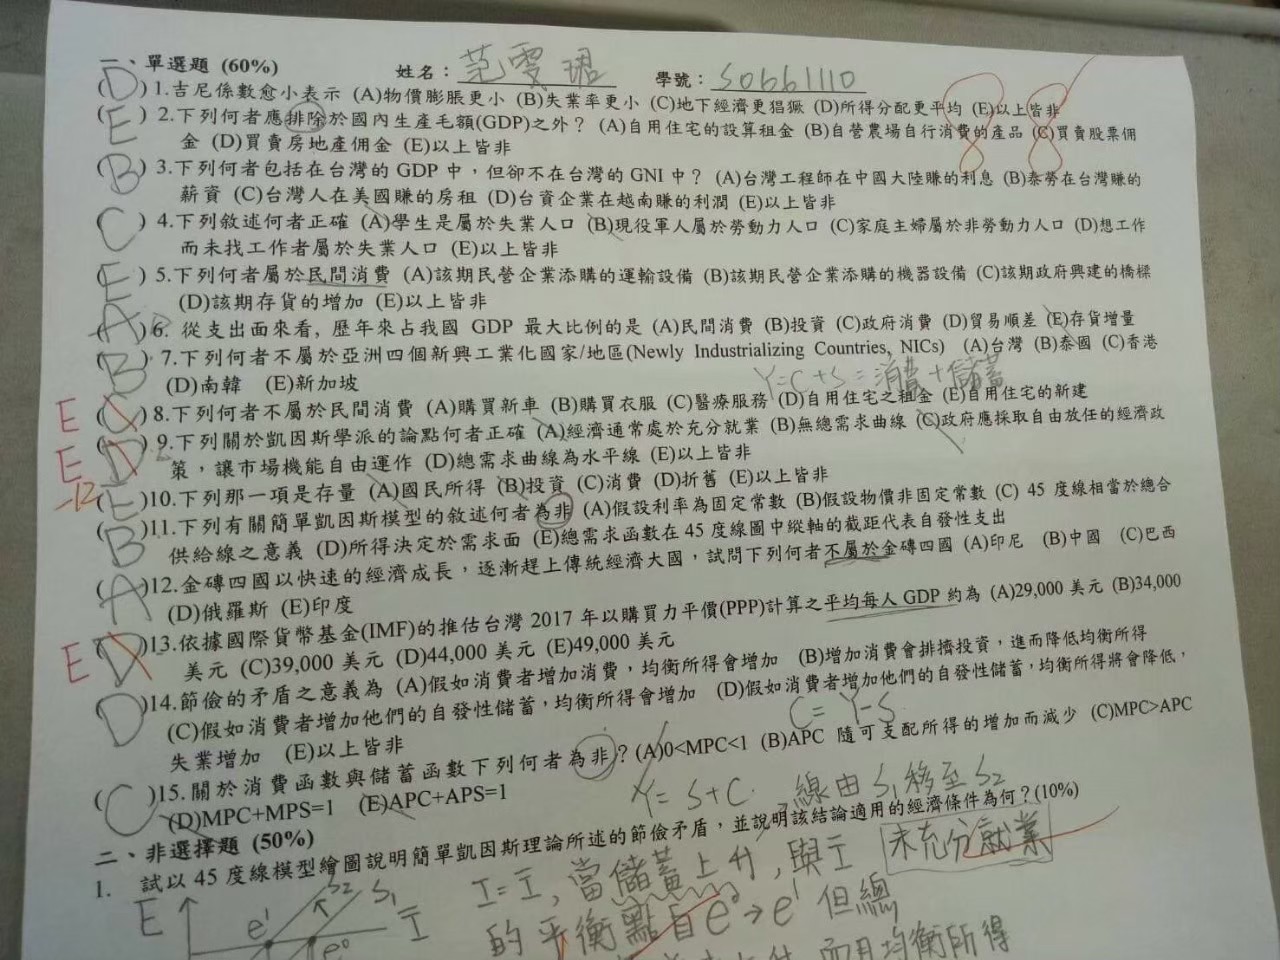 一、單選題 (60%) 姓名：范雯珺 學號：S0661110
88
(D) 1.吉尼係數愈小表示 (A)物價膨脹更小 (B)失業率更小 (C)地下經濟更猖獗 (D)所得分配更平均 (E)以上皆非
(E) 2.下列何者應排除於國內生產毛額(GDP)之外？ (A)自用住宅的設算租金 (B)自營農場自行消費的產品 (C)買賣股票佣
金 (D)買賣房地產佣金 (E)以上皆非
(B) 3.下列何者包括在台灣的 GDP 中，但卻不在台灣的 GNI 中？ (A)台灣工程師在中國大陸賺的利息 (B)泰勞在台灣賺的
薪資 (C)台灣人在美國賺的房租 (D)台資企業在越南賺的利潤 (E)以上皆非
(C) 4.下列敘述何者正確 (A)學生是屬於失業人口 (B)現役軍人屬於勞動力人口 (C)家庭主婦屬於非勞動力人口 (D)想工作
而未找工作者屬於失業人口 (E)以上皆非
(E) 5.下列何者屬於民間消費 (A)該期民營企業添購的運輸設備 (B)該期民營企業添購的機器設備 (C)該期政府興建的橋樑
(D)該期存貨的增加 (E)以上皆非
(A) 6. 從支出面來看, 歷年來占我國 GDP 最大比例的是 (A)民間消費 (B)投資 (C)政府消費 (D)貿易順差 (E)存貨增量
(B) 7.下列何者不屬於亞洲四個新興工業化國家/地區(Newly Industrializing Countries, NICs) (A)台灣 (B)泰國 (C)香港
(D)南韓 (E)新加坡
Y=C+S=消費+儲蓄
E ( ) 8.下列何者不屬於民間消費 (A)購買新車 (B)購買衣服 (C)醫療服務 (D)自用住宅之租金 (E)自用住宅的新建
E (D) 9.下列關於凱因斯學派的論點何者正確 (A)經濟通常處於充分就業 (B)無總需求曲線 (C)政府應採取自由放任的經濟政
策，讓市場機能自由運作 (D)總需求曲線為水平線 (E)以上皆非
-12 (E)10.下列那一項是存量 (A)國民所得 (B)投資 (C)消費 (D)折舊 (E)以上皆非
(B)11.下列有關簡單凱因斯模型的敘述何者為非 (A)假設利率為固定常數 (B)假設物價非固定常數 (C) 45 度線相當於總合
供給線之意義 (D)所得決定於需求面 (E)總需求函數在 45 度線圖中縱軸的截距代表自發性支出
(A)12.金磚四國以快速的經濟成長，逐漸趕上傳統經濟大國，試問下列何者不屬於金磚四國 (A)印尼 (B)中國 (C)巴西
(D)俄羅斯 (E)印度
E (D)13.依據國際貨幣基金(IMF)的推估台灣 2017 年以購買力平價(PPP)計算之平均每人 GDP 約為 (A)29,000 美元 (B)34,000
美元 (C)39,000 美元 (D)44,000 美元 (E)49,000 美元
(D)14.節儉的矛盾之意義為 (A)假如消費者增加消費，均衡所得會增加 (B)增加消費會排擠投資，進而降低均衡所得
(C)假如消費者增加他們的自發性儲蓄，均衡所得會增加 (D)假如消費者增加他們的自發性儲蓄，均衡所得將會降低，
失業增加 (E)以上皆非
C=Y-S
(C)15.關於消費函數與儲蓄函數下列何者為非？(A)0<MPC<1 (B)APC 隨可支配所得的增加而減少 (C)MPC>APC
(D)MPC+MPS=1 (E)APC+APS=1
Y=S+C.
線由S1移至S2
二、非選擇題 (50%)
1. 試以 45 度線模型繪圖說明簡單凱因斯理論所述的節儉矛盾，並說明該結論適用的經濟條件為何？(10%)
未充分就業
E S2 S1 I
e1 e0
I=I, 當儲蓄上升，與I
的平衡點自e0→e1 但總
而且均衡所得